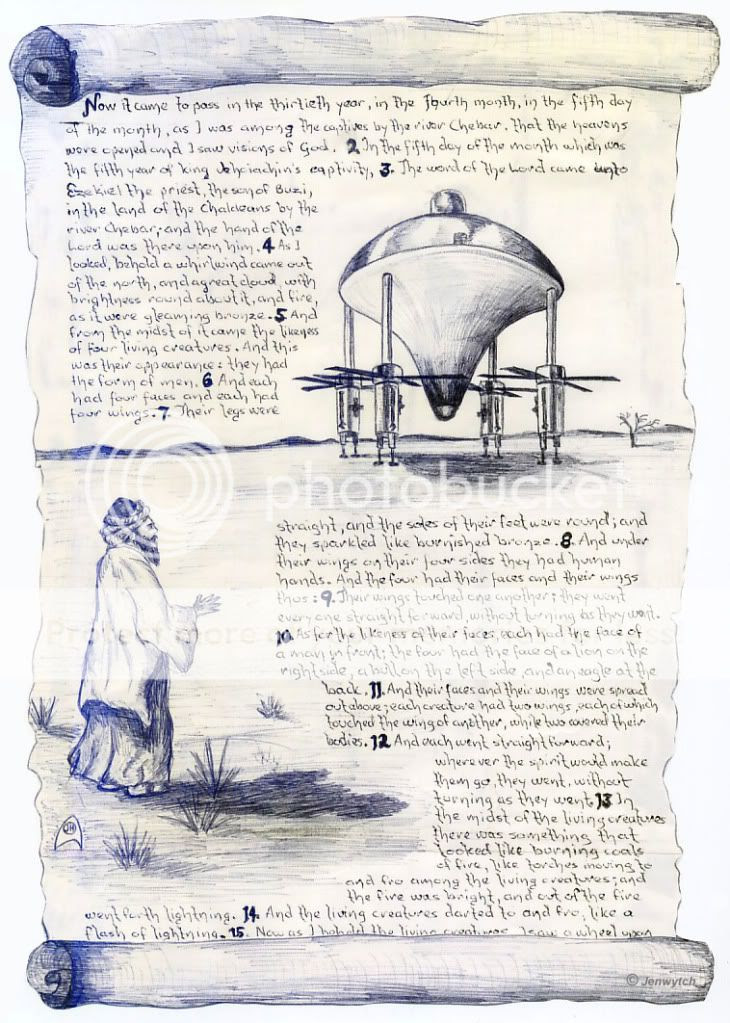 Now it came to pass in the thirtieth year, in the fourth month, in the fifth day
of the month, as I was among the captives by the river Chebar, that the heavens
were opened and I saw visions of God. 2 In the fifth day of the month which was
the fifth year of king Jehoiachin's captivity, 3. The word of the Lord came unto
Ezekiel the priest, the son of Buzi,
in the land of the Chaldeans by the
river Chebar; and the hand of the
Lord was there upon him. 4 As I
looked, behold a whirlwind came out
of the north, and a great cloud, with
brightness round about it, and fire,
as it were gleaming bronze. 5 And
from the midst of it came the likeness
of four living creatures. And this
was their appearance: they had
the form of men. 6 And each
had four faces and each had
four wings. 7. Their legs were
photobucket
straight, and the soles of their feet were round; and
they sparkled like burnished bronze. 8. And under
their wings on their four sides they had human
hands. And the four had their faces and their wings
thus: 9. Their wings touched one another; they went
every one straight forward, without turning as they went.
Protect more
10. As for the likeness of their faces, each had the face of
a man in front; the four had the face of a lion on the
right side, a bull on the left side, and an eagle at the
back. 11. And their faces and their wings were spread
out above; each creature had two wings, each of which
touched the wing of another, while two covered their
bodies. 12 And each went straight forward;
wherever the spirit would make
them go, they went, without
turning as they went. 13 In
the midst of the living creatures
there was something that
looked like burning coals
of fire, like torches moving to
and fro among the living creatures; and
the fire was bright, and out of the fire
went forth lightning. 14. And the living creatures darted to and fro, like a
flash of lightning. 15. Now as I behold the living creatures I saw a wheel upon
JH
© Jenwytch